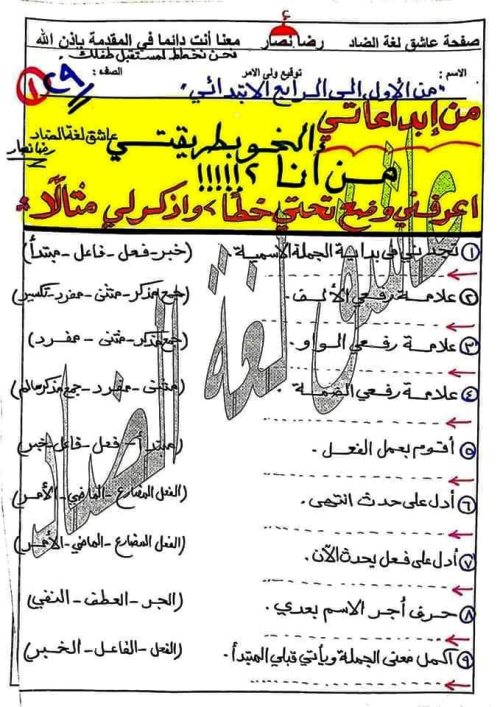 صفحة عاشق لغة الضاد رضا نصار معنا أنت دائما في المقدمة بإذن الله
نحن نخطط لمستقبل طفلك
الاسم : توقيع ولى الامر الصف :
"من الأول إلى الرابع الابتدائي"
٢٩
١
من إبداعاتي
عاشق لغة الضاد
رضا نصار
النحو بطريقتي
من أنا ؟!!!!!
اعرفني وضع تحتي خطًا، واذكر لي مثالًا :
١ تجدني في بداية الجملة الاسمية . (خبر - فعل - فاعل - مبتدأ)
٢ علامة رفعي الألف . (جمع مذكر - مثنى - مفرد - تكسير)
٣ علامة رفعي الواو . (جمع مذكر - مثنى - مفرد)
٤ علامة رفعي الضمة . (مثنى - مفرد - جمع مذكر سالم)
٥ أقوم بعمل الفعل . (مبتدأ - فعل - فاعل - خبر)
٦ أدل على حدث انتهى . (الفعل المضارع - الماضي - الأمر)
٧ أدل على فعل يحدث الآن . (الفعل المضارع - الماضي - الأمر)
٨ حرف أجر الاسم بعدي . (الجر - العطف - النفي)
٩ اكمل معنى الجملة ويأتي قبلي المبتدأ . (الفعل - الفاعل - الخبر)
عاشق لغة الضاد